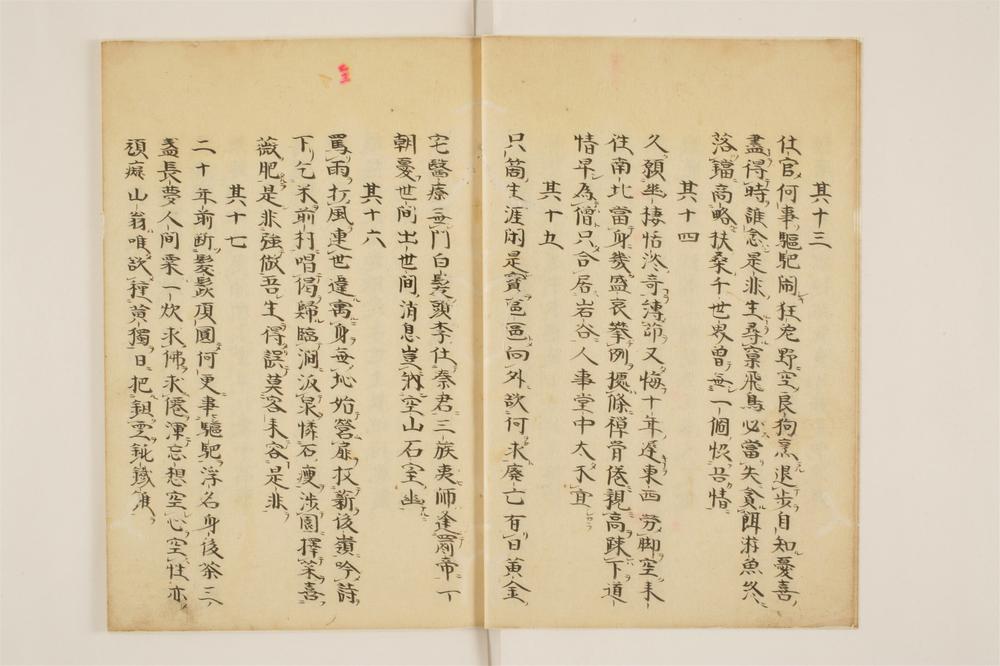 其十三
仕官何事驅馳閙狂兎野空良狗烹退歩自知憂喜
盡得時誰念是非生尋窠飛鳥必當失貪餌游魚終
落鐺高略扶桑千世界曾無一個恢吾情
其十四
久願幽棲恬澹奇薄命又悔十年遲東西労脚空来
往南北當身幾盛衰攀例擾條禅骨倦親高疎下道
情早為僧只合居岩谷人事堂中太不宜
其十五
只箇生涯閑是寶區區向外欲何求廃亡有日黄金
宅醫療無門白髪頭李仕秦君三族夷師逢罰帝一
朝憂世間出世間消息豈納空山石室幽
其十六
罵雨打風連世違寓身無地始營扉收薪後嶺吟詩
下乞米前村唱偈歸臨澗汲泉憐石痩渉園擇菜喜
薇肥是非強做吾生得誤莫容来客是非
其十七
二十年前断髪髭頂圓何更事驅馳浮名身後茶三
盞長夢人間粟一炊求佛求僊渾忘想空心空性亦
頑癡山翁唯欲種黄獨日把鉏雲